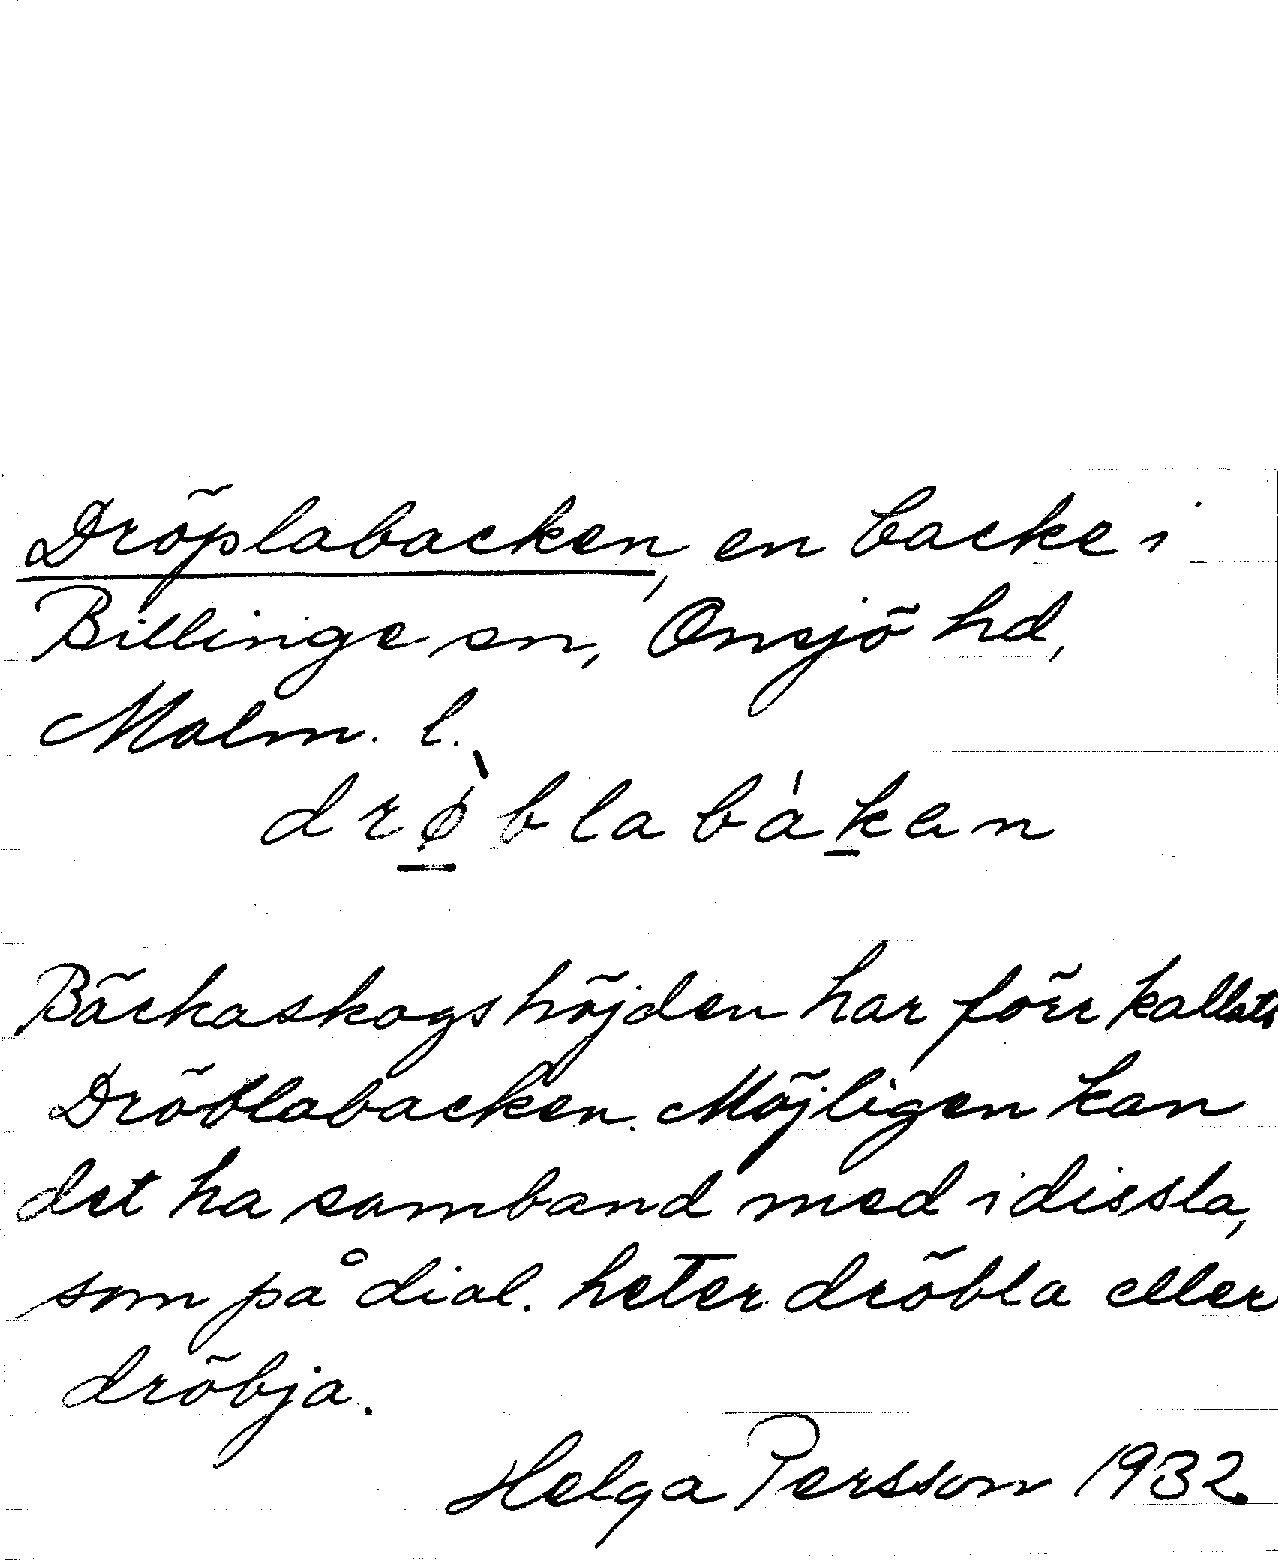 Dröplabacken, en backe i
Billinge sn, Onsjö hd,
Malm. l.
drø̀blabàken
Bäckaskogshöjden har förr kallats
Dröblabacken. Möjligen kan
det ha samband med idissla,
som på dial. heter dröbla eller
dröbja.
Helga Persson 1932.